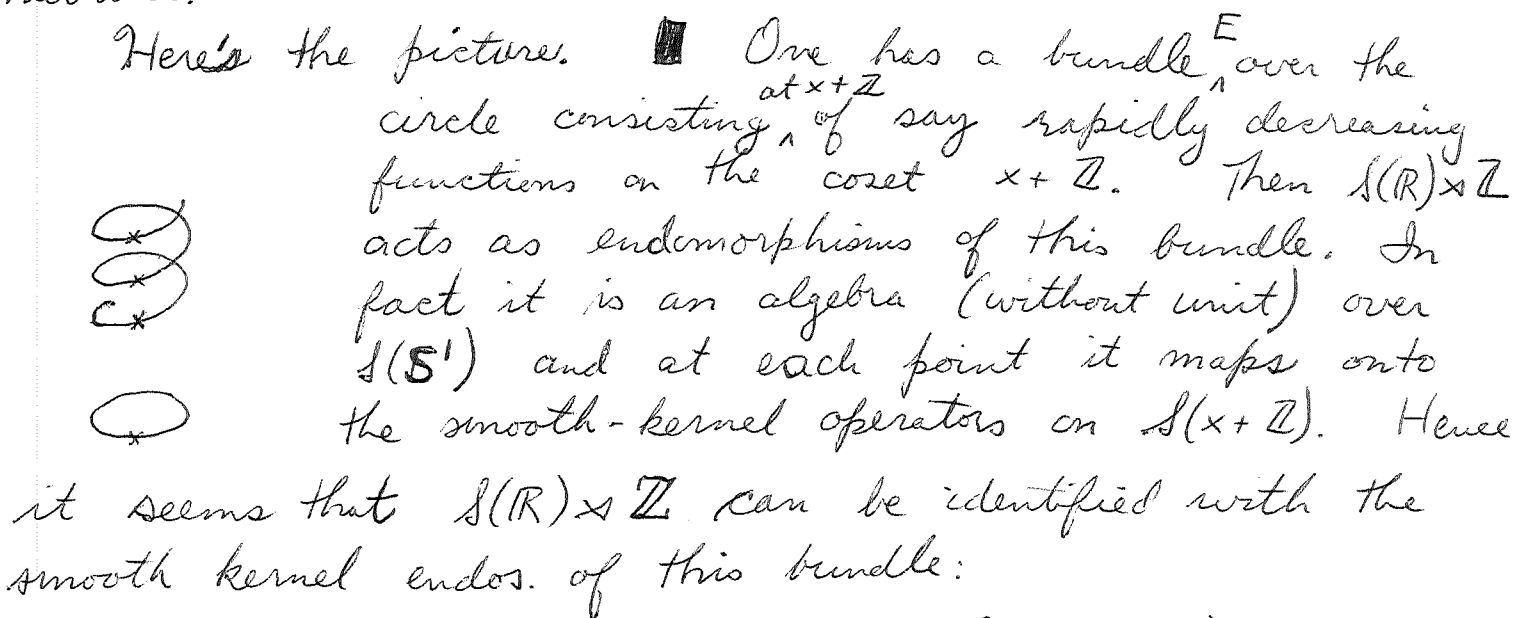 Here's the picture. One has a bundle E over the
circle consisting at x+ℤ of say rapidly decreasing
functions on the coset x+ℤ. Then 𝒮(ℝ)⋊ℤ
acts as endomorphisms of this bundle. In
fact it is an algebra (without unit) over
𝒮(S¹) and at each point it maps onto
the smooth-kernel operators on 𝒮(x+ℤ). Hence
it seems that 𝒮(ℝ)⋊ℤ can be identified with the
smooth kernel endos. of this bundle: